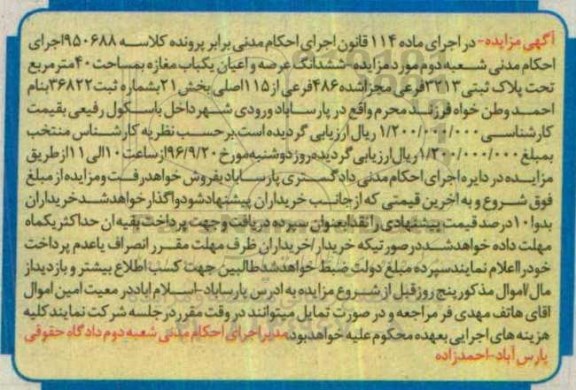 آگهی مزایده- در اجرای ماده ۱۱۴ قانون اجرای احکام مدنی برابر پرونده کلاسه ۹۵۰۶۸۸ اجرای
احکام مدنی شعبه دوم مورد مزایده-ششدانگ عرصه و اعیان یکباب مغازه بمساحت ۴۰ مترمربع
تحت پلاک ثبتی ۳۲۱۳ فرعی مجزا شده ۴۸۶ فرعی از ۱۱۵ اصلی بخش ۲۱ بشماره ثبت ۳۶۸۲۲ بنام
احمد وطن خواه فرزند محرم واقع در پارساباد ورودی شهر داخل باسکول رفیعی بقیمت
کارشناسی ۱/۲۰۰/۰۰۰/۰۰۰ ریال ارزیابی گردیده است.برحسب نظریه کارشناس منتخب
بمبلغ ۱/۲۰۰/۰۰۰/۰۰۰ ریال ارزیابی گردیده روز دوشنبه مورخ ۹۶/۹/۲۰ از ساعت ۱۰ الی ۱۱ از طریق
مزایده در دایره اجرای احکام مدنی دادگستری پارساباد بفروش خواهد رفت و مزایده از مبلغ
فوق شروع و به آخرین قیمتی که از جانب خریداران پیشنهاد شود واگذار خواهد شد خریداران
بدوا ۱۰ درصد قیمت پیشنهادی را نقدا بعنوان سپرده دریافت و جهت پرداخت بقیه آن حداکثر یکماه
مهلت داده خواهد شد در صورتیکه خریدار/خریداران ظرف مهلت مقرر انصراف یا عدم پرداخت
خود را اعلام نمایند سپرده مبلغ دولت ضبط خواهد شد طالبین جهت کسب اطلاع بیشتر و بازدید از
مال/اموال مذکور پنج روز قبل از شروع مزایده به ادرس پارساباد-اسلام اباد در معیت امین اموال
اقای هاتف مهدی فر مراجعه و در صورت تمایل میتوانند در وقت مقرر در جلسه شرکت نمایند کلیه
هزینه های اجرایی بعهده محکوم علیه خواهد بود.مدیر اجرای احکام مدنی شعبه دوم دادگاه حقوقی
پارس آباد-احمدزاده